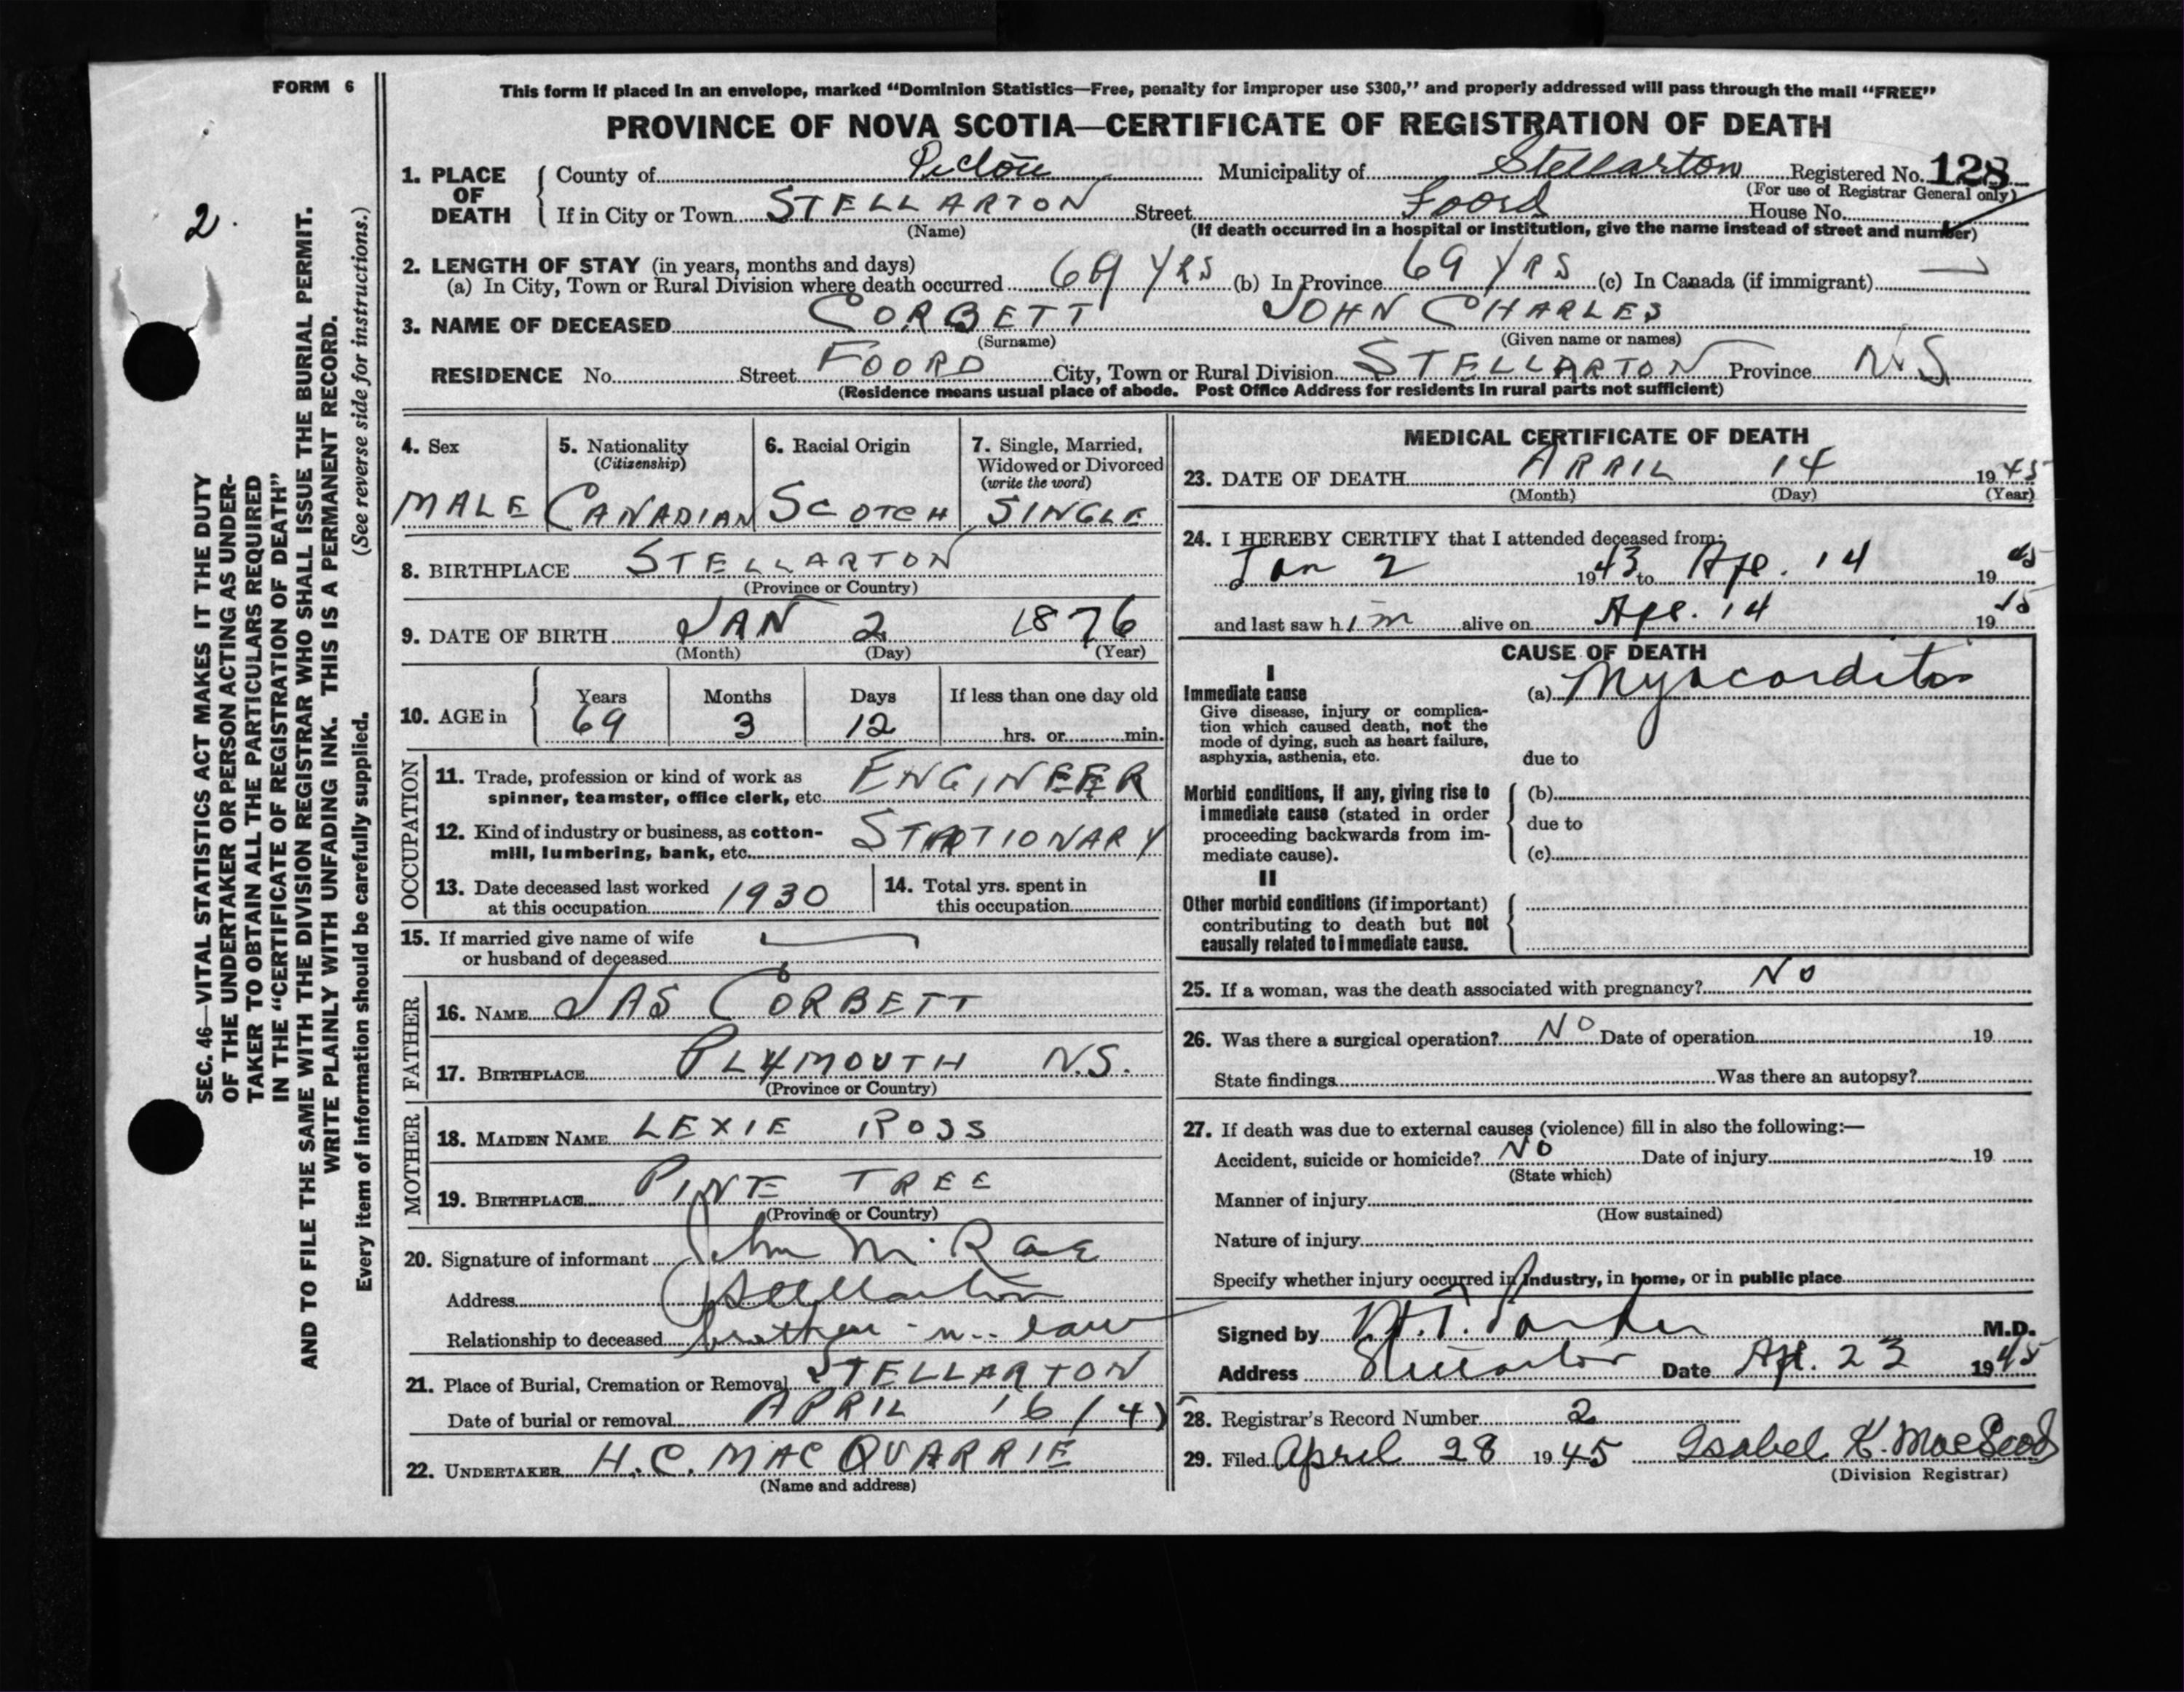 FORM 6
This form if placed in an envelope, marked “Dominion Statistics—Free, penalty for improper use $300,” and properly addressed will pass through the mail “FREE”
PROVINCE OF NOVA SCOTIA—CERTIFICATE OF REGISTRATION OF DEATH
1. PLACE OF DEATH
County of Pictou Municipality of Stellarton Registered No. 128
(For use of Registrar General only)
If in City or Town STELLARTON Street Foord House No.
(Name) (If death occurred in a hospital or institution, give the name instead of street and number)
2. LENGTH OF STAY (in years, months and days)
(a) In City, Town or Rural Division where death occurred 69 YRS (b) In Province 69 YRS (c) In Canada (if immigrant) —
3. NAME OF DECEASED CORBETT JOHN CHARLES
(Surname) (Given name or names)
RESIDENCE No. Street FOORD City, Town or Rural Division STELLARTON Province N.S
(Residence means usual place of abode. Post Office Address for residents in rural parts not sufficient)
4. Sex
MALE
5. Nationality
(Citizenship)
CANADIAN
6. Racial Origin
SCOTCH
7. Single, Married,
Widowed or Divorced
(write the word)
SINGLE
8. BIRTHPLACE STELLARTON
(Province or Country)
9. DATE OF BIRTH JAN 2 1876
(Month) (Day) (Year)
10. AGE in
Years Months Days If less than one day old
69 3 12 hrs. or min.
OCCUPATION
11. Trade, profession or kind of work as
spinner, teamster, office clerk, etc. ENGINEER
12. Kind of industry or business, as cotton-
mill, lumbering, bank, etc. STATIONARY
13. Date deceased last worked
at this occupation 1930
14. Total yrs. spent in
this occupation
15. If married give name of wife
or husband of deceased
FATHER
16. NAME JAS CORBETT
17. BIRTHPLACE PLYMOUTH N.S.
(Province or Country)
MOTHER
18. MAIDEN NAME LEXIE ROSS
19. BIRTHPLACE PINE TREE
(Province or Country)
20. Signature of informant John McRae
Address Stellarton
Relationship to deceased brother-in-law
21. Place of Burial, Cremation or Removal STELLARTON
Date of burial or removal APRIL 16/4
22. UNDERTAKER H.C. MACQUARRIE
(Name and address)
MEDICAL CERTIFICATE OF DEATH
23. DATE OF DEATH APRIL 14 1945
(Month) (Day) (Year)
24. I HEREBY CERTIFY that I attended deceased from:
Jan 2 1943 to Apr. 14 1945
and last saw him alive on Apr. 14 1945
CAUSE OF DEATH
I
Immediate cause
Give disease, injury or complica-
tion which caused death, not the
mode of dying, such as heart failure,
asphyxia, asthenia, etc.
(a) Myocarditis
due to
Morbid conditions, if any, giving rise to
immediate cause (stated in order
proceeding backwards from im-
mediate cause).
(b)
due to
(c)
II
Other morbid conditions (if important)
contributing to death but not
causally related to immediate cause.
25. If a woman, was the death associated with pregnancy? No
26. Was there a surgical operation? No Date of operation 19
State findings Was there an autopsy?
27. If death was due to external causes (violence) fill in also the following:—
Accident, suicide or homicide? No Date of injury 19
(State which)
Manner of injury
(How sustained)
Nature of injury
Specify whether injury occurred in industry, in home, or in public place
Signed by M.D.
Address Stellarton Date Apr. 23 1945
28. Registrar's Record Number 2
29. Filed April 28 1945 Isabel K. MacLeod
(Division Registrar)
2.
SEC. 46—VITAL STATISTICS ACT MAKES IT THE DUTY
OF THE UNDERTAKER OR PERSON ACTING AS UNDER-
TAKER TO OBTAIN ALL THE PARTICULARS REQUIRED
IN THE “CERTIFICATE OF REGISTRATION OF DEATH”
AND TO FILE THE SAME WITH THE DIVISION REGISTRAR WHO SHALL ISSUE THE BURIAL PERMIT.
WRITE PLAINLY WITH UNFADING INK. THIS IS A PERMANENT RECORD.
Every item of information should be carefully supplied. (See reverse side for instructions.)